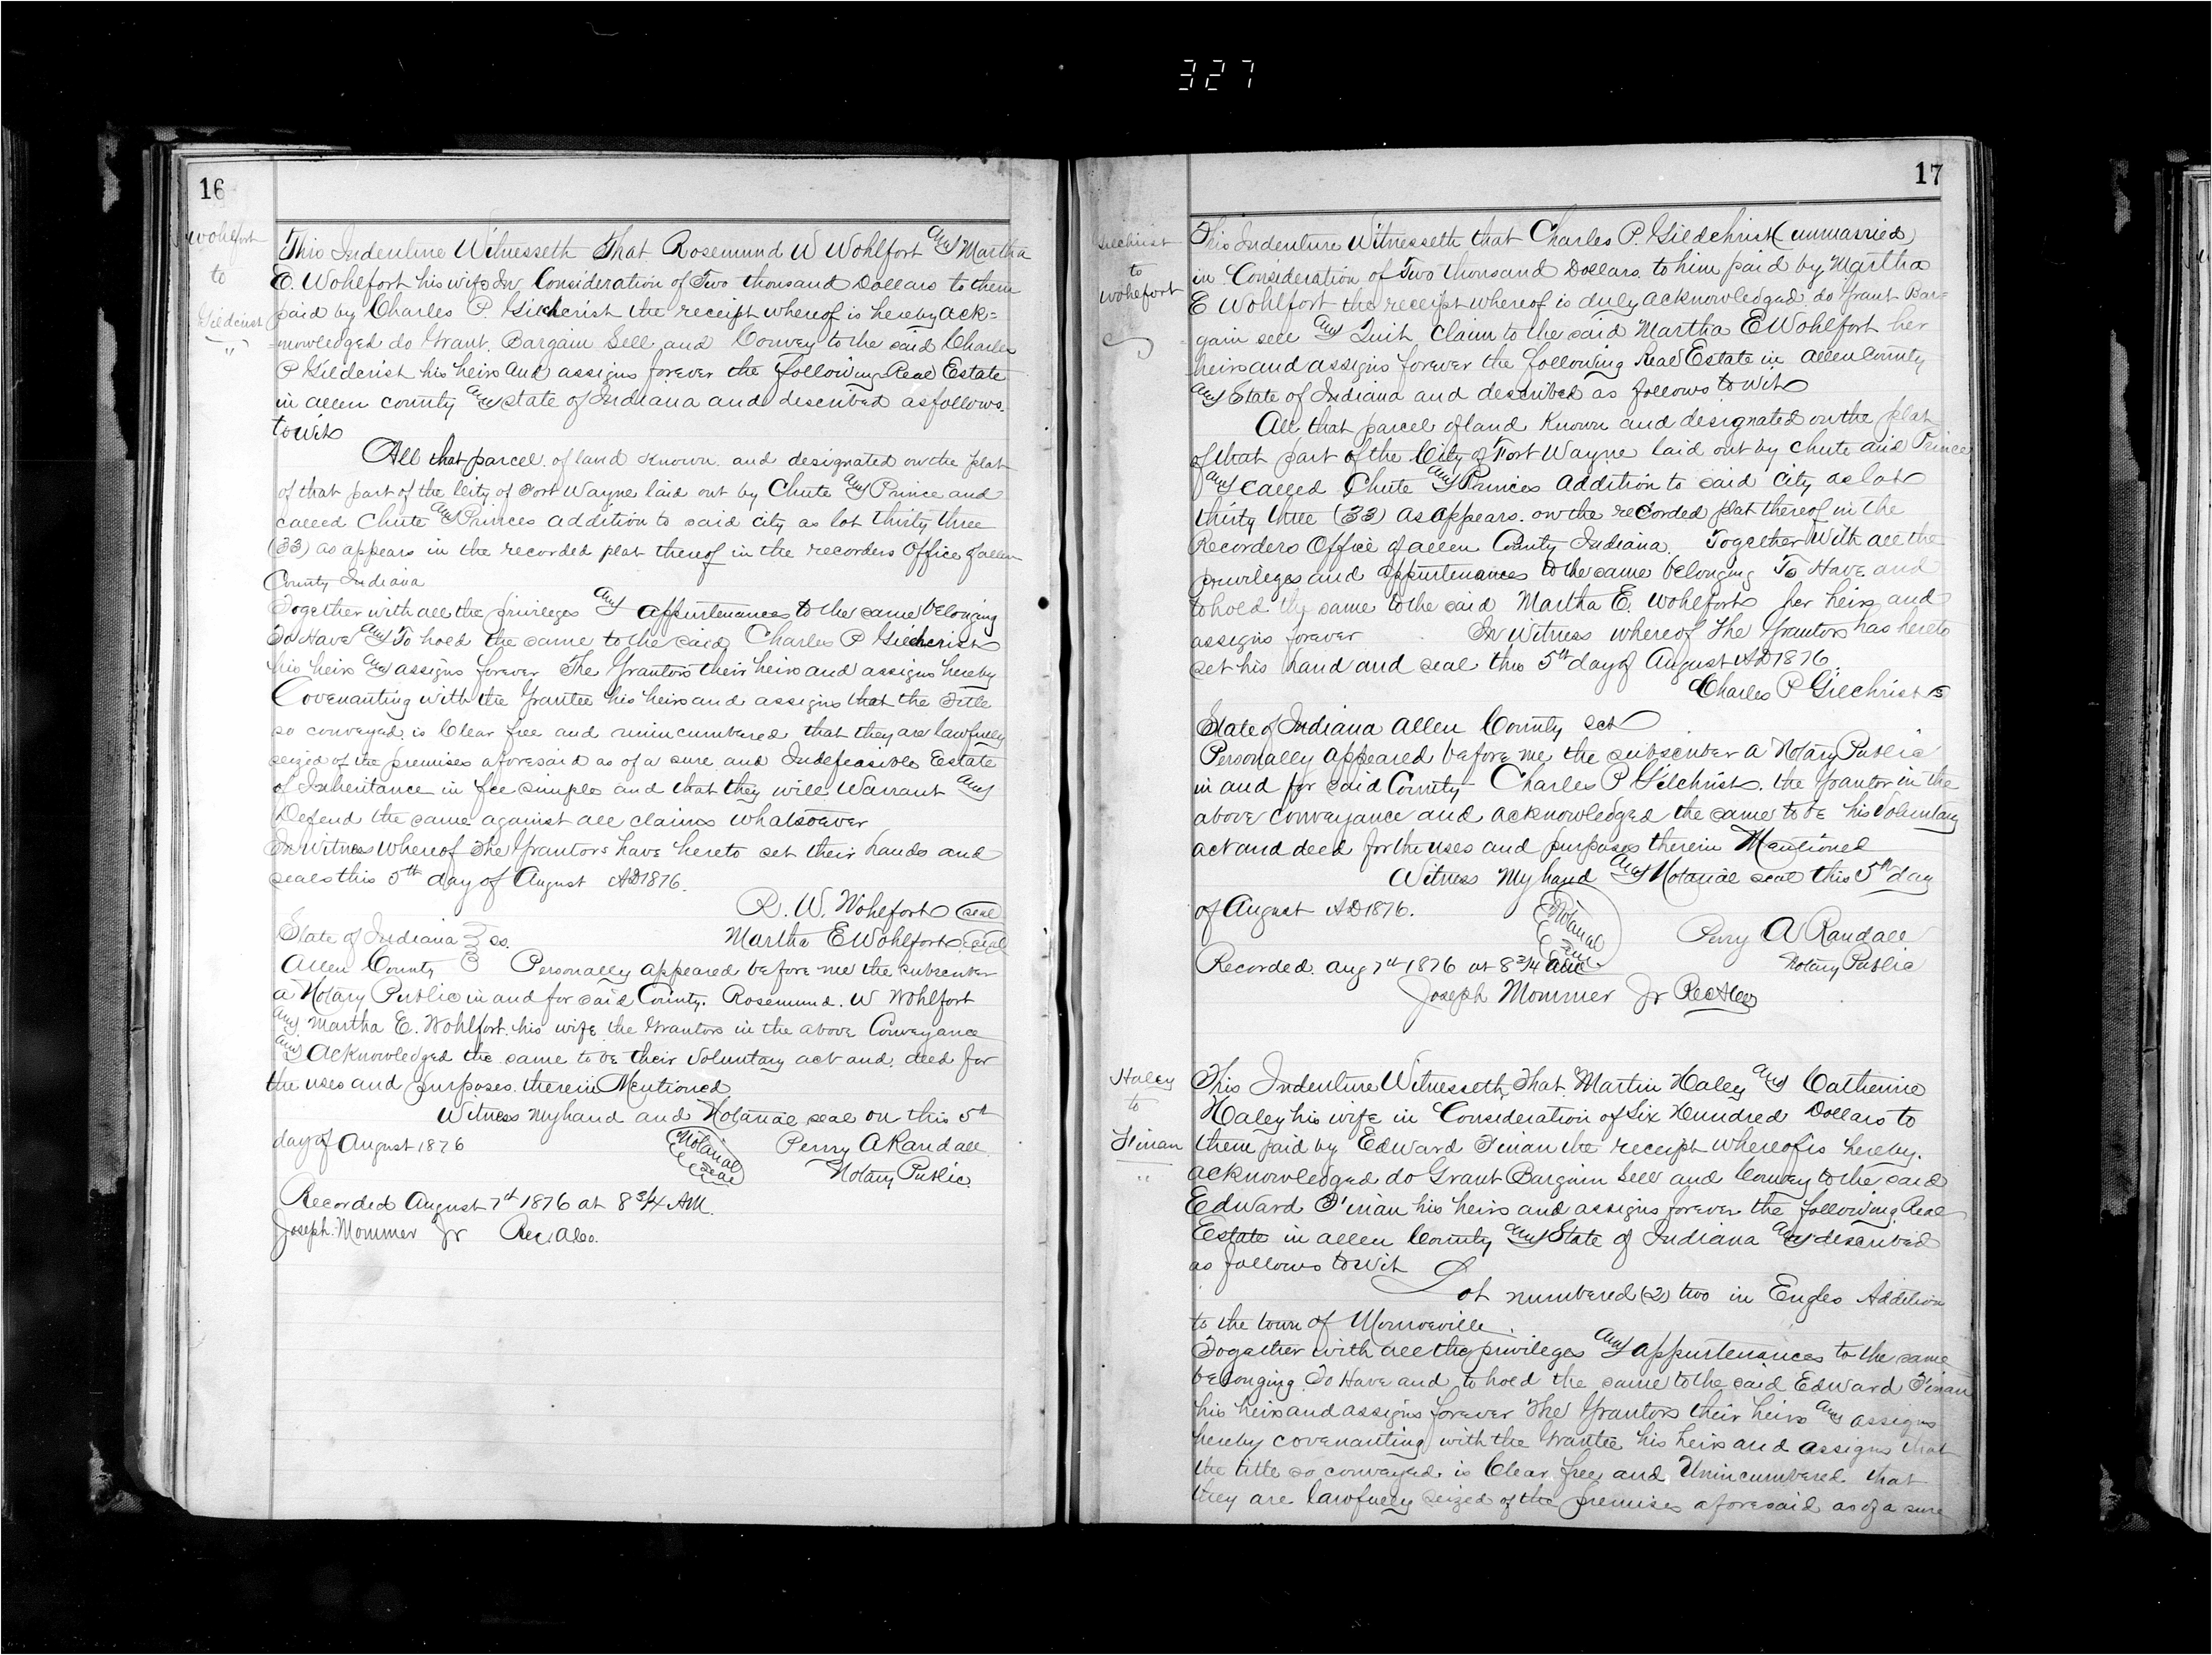 327
16
Wohlfort
to
Gildcrist
This Indenture Witnesseth That Rosemund W Wohlfort and Martha
E. Wohlefort his wife In Consideration of Two thousand Dollars to them
paid by Charles P. Gilcherist the receipt whereof is hereby ack=
nowledged do Grant, Bargain Sell and Convey to the said Charles
P Gildcrist his heirs and assigns forever the following Real Estate
in allen county and state of Indiana and described as follows.
to wit
All that parcel of land known and designated on the plat
of that part of the City of Fort Wayne laid out by Chute and Prince and
called Chute and Princes addition to said city as lot thirty three
(33) as appears in the recorded plat thereof in the recorders Office of allen
County Indiana
Together with all the privileges and appurtenances to the same belonging
To Have and To hold the same to the said Charles P Gilcherist
his heirs and assigns forever The Grantors their heirs and assigns hereby
Covenanting with the Grantee his heirs and assigns that the Title
so conveyed is Clear free and unincumbered that they are lawfully
seized of the premises aforesaid as of a sure and Indefeasible Estate
of Inheritance in fee simple and that they will Warrant and
Defend the same against all claims whatsoever
In Witness Whereof The Grantors have hereto set their hands and
seals this 5th day of August AD 1876.
R. W. Wohlfort seal
State of Indiana } ss. Martha E Wohlfort seal
Allen County } Personally appeared before me the subscriber
a Notary Public in and for said County. Rosemund. W Wohlfort
and Martha E. Wohlfort his wife the Grantors in the above Conveyance
and acknowledged the same to be their voluntary act and deed for
the uses and purposes therein Mentioned
Witness my hand and Notarial seal on this 5th
day of August 1876 Notarial Seal Perry A Randall
Notary Public
Recorded August 7th 1876 at 8 3/4 AM.
Joseph Mommer Jr Rec. A Co.
17
Gilchrist
to
Wohlefort
This Indenture Witnesseth that Charles P. Gildchrist (unmarried)
in Consideration of Two thousand Dollars to him paid by Martha
E Wohlfort the receipt whereof is duly acknowledged do Grant Bar=
gain sell and Quit Claim to the said Martha E Wohlfort her
heirs and assigns forever the following Real Estate in allen county
and State of Indiana and described as follows to wit
All that parcel of land Known and designated on the plat
of that part of the City of Fort Wayne laid out by Chute and Prince
and called Chute and Princes addition to said City as lot
thirty three (33) as appears on the recorded plat thereof in the
Recorders Office of allen County Indiana Together with all the
privileges and appurtenances to the same belonging To Have and
to hold the same to the said Martha E. Wohlfort her heirs and
assigns forever In Witness whereof The Grantor has hereto
set his hand and seal this 5th day of August AD 1876.
Charles P Gilchrist
State of Indiana Allen County sct
Personally appeared before me the subscriber a Notary Public
in and for said County Charles P Gilchrist. the Grantor in the
above conveyance and acknowledged the same to be his voluntary
act and deed for the uses and purposes therein Mentioned
Witness My hand and Notarial seal this 5th day
of August AD 1876. Notarial Seal Perry A Randall
Recorded aug 7th 1876 at 8 3/4 am Notary Public
Joseph Mommer Jr Rec A Co
Haley
to
Finan
This Indenture Witnesseth, That Martin Haley and Catherine
Haley his wife in Consideration of Six Hundred Dollars to
them paid by Edward Finan the receipt whereof is hereby.
acknowledged do Grant Bargain Sell and Convey to the said
Edward Finan his heirs and assigns forever the following Real
Estate in allen County and State of Indiana and described
as follows to wit
Lot numbered (2) two in Engles Addition
to the town of Monroeville.
Together with all the privileges and appurtenances to the same
belonging To Have and to hold the same to the said Edward Finan
his heirs and assigns forever The Grantors their heirs and assigns
hereby covenanting with the Grantee his heirs and assigns that
the title so conveyed is Clear free and Unincumbered that
they are lawfully seized of the premises aforesaid as of a sure